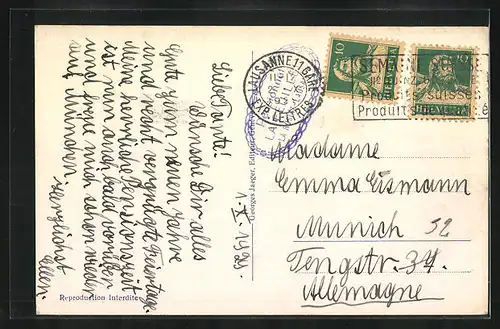 Liebe Tante!
Wünsche Dir alles
Gute zum neuen Jahre
und recht vergnügte Feiertage.
Meine herrliche Pensionszeit
ist nun auch bald vorüber
und freue mich schon wieder
auf München.
Herzlichst
Ellen.
1. X. 1925.
Georges Jaeger, Edit
Reproduction Interdite
LAUSANNE 11 GARE
EXP. LETTRES
10
HELVETIA
10
HELVETIA
SEMAINE
SUISSE
Produits
Madame
Emma Eismann
Munich 52
Tengstr. 34.
Allemagne